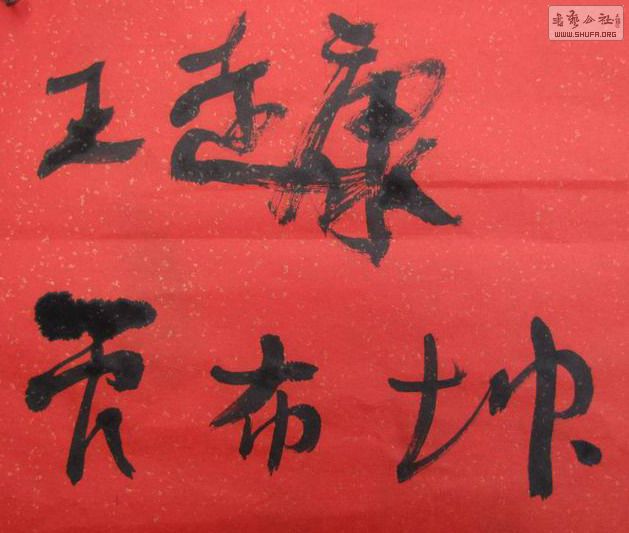 書藝公社
WWW.SHUFA.ORG
王康
贾布坤